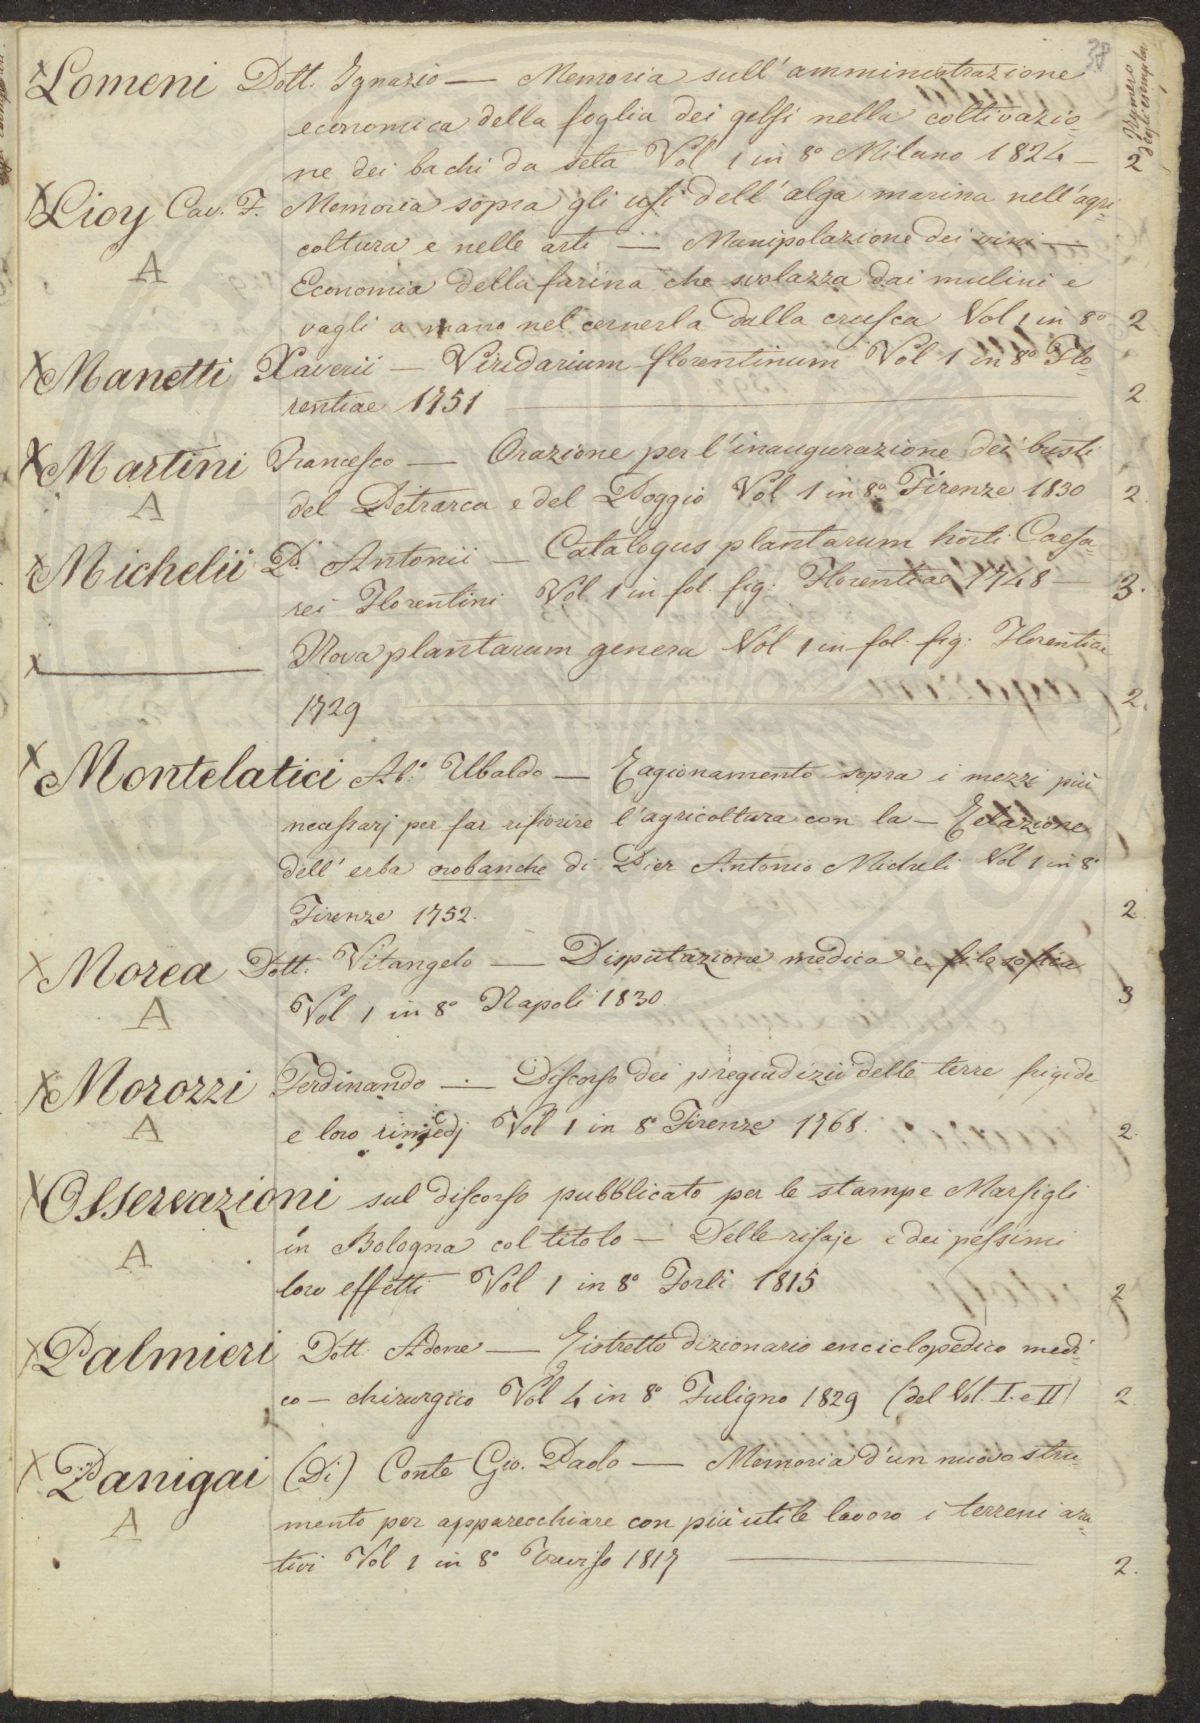 38
Numero degli esemplari
X Lomeni Dott. Ignazio — Memoria sull'amministrazione
economica della foglia dei gelsi nella coltivazio=
ne dei bachi da seta Vol 1 in 8° Milano 1824 — 2
X Lioy Cav. F. Memoria sopra gli usi dell'alga marina nell'agri=
coltura e nelle arti — Manipolazione dei vini —
A
Economia della farina che svolazza dai mulini e
vagli a mano nel cernerla dalla crusca Vol 1 in 8° 2
X Manetti Xaverii — Viridarium florentinum Vol 1 in 8° Flo=
rentiae 1751 2
X Martini Francesco — Orazione per l'inaugurazione dei busti
A
del Petrarca e del Poggio Vol 1 in 8° Firenze 1830 2.
X Michelii P. Antonii — Catalogus plantarum horti Caesa=
rei Florentini Vol 1 in fol. fig. Florentiae 1748 — 3.
X — Nova plantarum genera Vol 1 in fol. fig. Florentiae
1729 2.
X Montelatici Ab.e Ubaldo — Ragionamento sopra i mezzi più
necessarj per far rifiorire l'agricoltura con la — Relazione
dell'erba orobanche di Pier Antonio Micheli Vol 1 in 8°
Firenze 1752. 2
X Morea Dott. Vitangelo — Disputazione medica e filosofica
A
Vol 1 in 8° Napoli 1830 3
X Morozzi Ferdinando — Discorso dei pregiudizii delle terre frigide
A
e loro rimedj Vol 1 in 8° Firenze 1768. 2.
X Osservazioni sul discorso pubblicato per le stampe Marsigli
in Bologna col titolo — Delle risaje e dei pessimi
A
loro effetti Vol 1 in 8° Forlì 1815 2
X Palmieri Dott. Adone — Ristretto dizionario enciclopedico medi=
co — chirurgico Vol 4 in 8° Fuligno 1829 (del Vol. I. e II) 2
X Panigai (Di) Conte Gio. Paolo — Memoria d'un nuovo stru=
A
mento per apparecchiare con più utile lavoro i terreni ara=
tivi Vol 1 in 8° Treviso 1817 2.